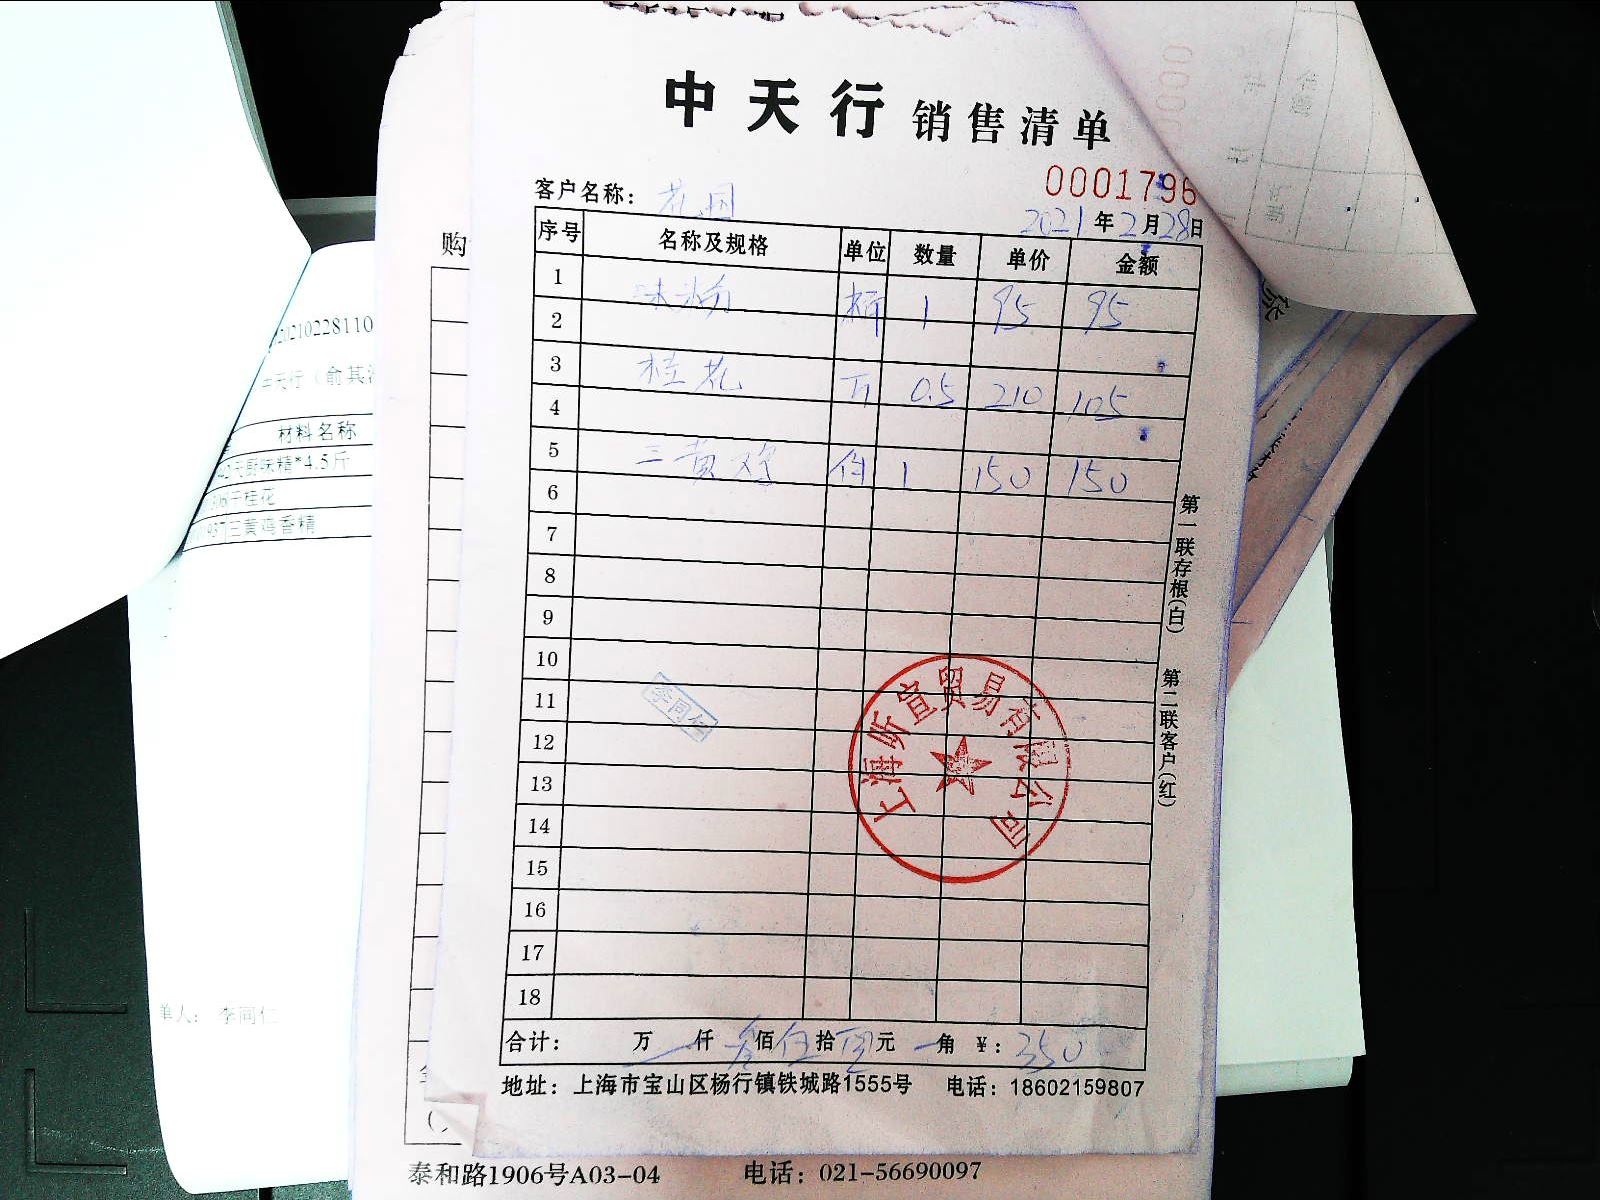 中天行 销售清单
0001796
客户名称： 花园
2021年2月28日
序号 名称及规格 单位 数量 单价 金额
1 1 95 95
2
3 桂花 斤 0.5 210 105
4
5 三黄鸡 1 150 150
6
7
8
9
10
11
12
13
14
15
16
17
18
合计： 万 仟 叁佰伍拾 元 角 ¥：350
地址：上海市宝山区杨行镇铁城路1555号 电话：18602159807
第一联存根(白) 第二联客户(红)
上海昕宣贸易有限公司
李同仁
购
泰和路1906号A03-04 电话：021-56690097
210228110
材料名称
味精*4.5斤
干桂花
三黄鸡香精
单人： 李同仁